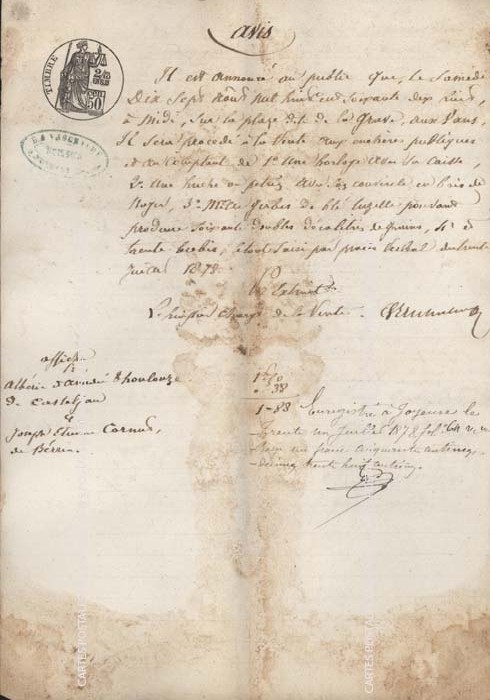 avis
TIMBRE
50
Il est annoncé au public que, le Samedi
Dix Sept Août Mil huit cent Soixante dix huit,
à Midi, Sur la place dit de la Grave, aux Vans,
Il Sera procédé à la Vente aux enchères publiques
et au Comptant de 1° Une horloge avec Sa Caisse,
2° Une huche a petrir avec Son couvercle en bois de
Noyer, 3° gerbes de blé tuzelle pouvant
produire Soixante doubles décalitres de grains, 4°
trente brebis, le tout Saisi par procès Verbal du trente
Juillet 1878.
Pr Extrait
L'huissier Chargé de la Vente.
affiché
à
Albérie d'Amédé Thoulouze
De Castaljau
&
Joseph Etienne Cornus,
de Berrias.
1-50
.38
1-88
Enregistré à Joyeuse le
trente un Juillet 1878 fol. 64
Reçu un franc cinquante centimes,
décimes trente huit centimes.
CARTES POSTALES
CARTES POSTALES